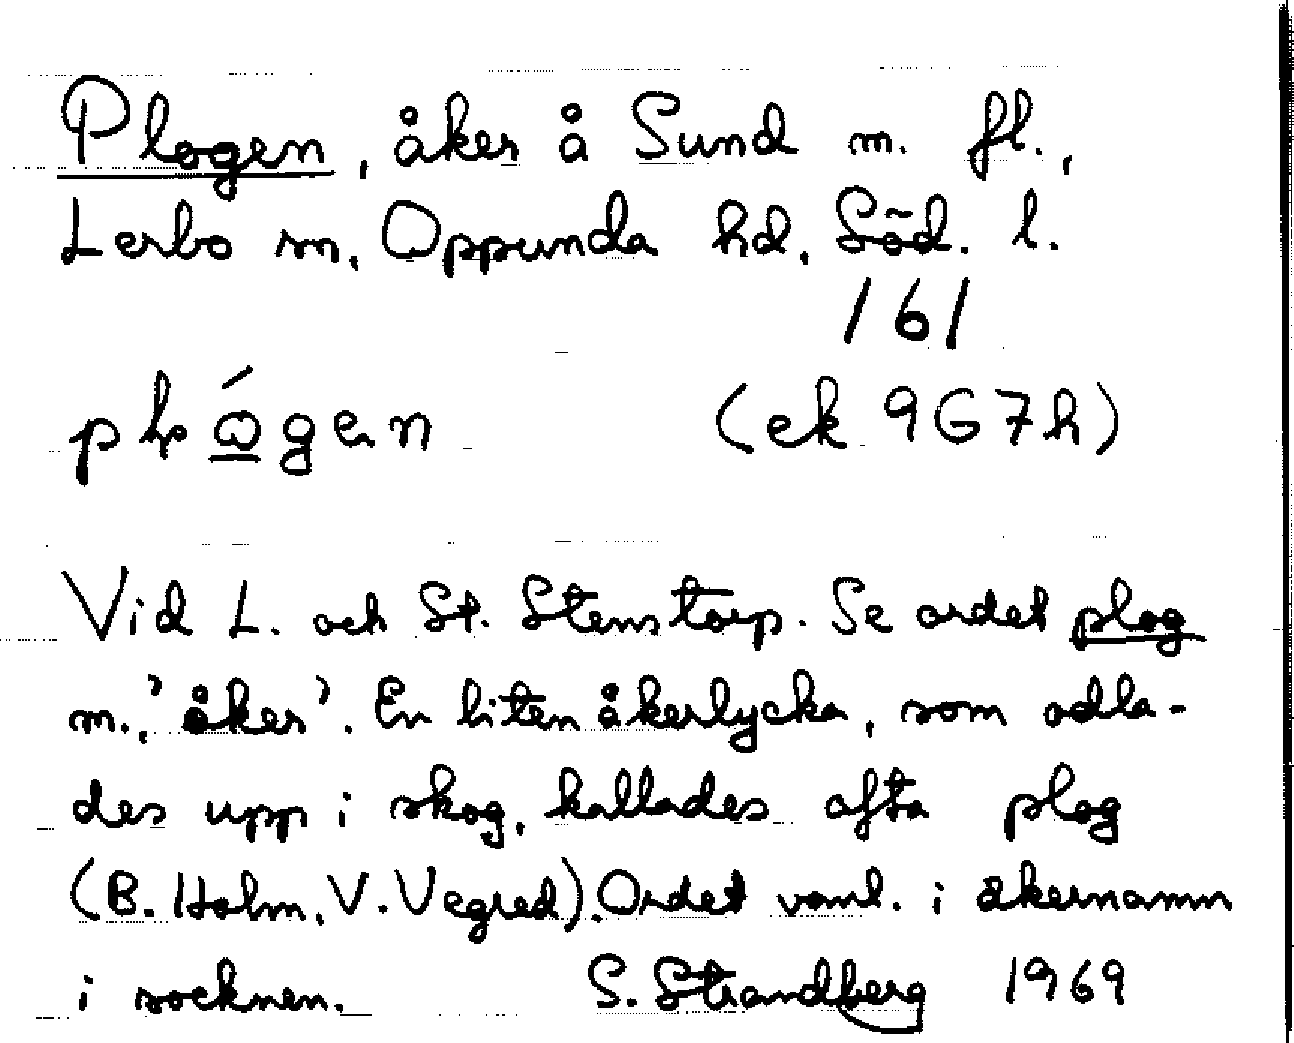 Plogen, åker å Sund m. fl.,
Lerbo sn, Oppunda hd, Söd. l.
161
(ek 9G7h)
Vid L. och St. Stenstorp. Se ordet plog
m., 'åker'. En liten åkerlycka, som odla-
des upp i skog, kallades ofta plog
(B. Holm, V. Vegred). Ordet vanl. i åkernamn
i socknen. S. Strandberg 1969